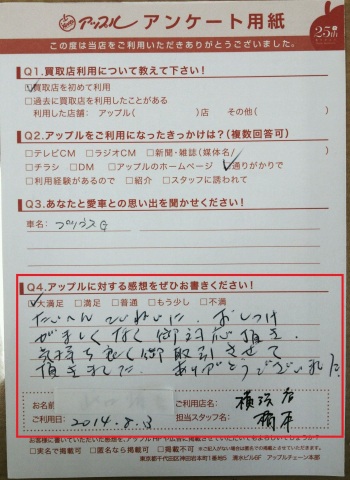 アップル アンケート用紙
25th
この度は当店をご利用いただきありがとうございました。
Q1.買取店利用について教えて下さい!
☑買取店を初めて利用
□過去に買取を利用したことがある
利用した店舗: アップル( )店 その他( )
Q2.アップルをご利用になったきっかけは?(複数回答可)
□テレビCM □ラジオCM □新聞・雑誌(媒体名/ )
□チラシ □DM □アップルのホームページ ☑通りがかりで
□利用経験があるので □紹介 □スタッフに誘われて
Q3.あなたと愛車との思い出を聞かせください!
車名:
Q4.アップルに対する感想をぜひお書きください!
☑大満足 □満足 □普通 □もう少し □不満
たいへん ていねいに、おしつけ
がましくなく 御対応頂き、
気持ち良く御取引させて
頂きました。ありがとうございました
お名前
ご利用店名: 横浜店
ご利用日: 2014.8.3
担当スタッフ名: 橋本
お客様に書いていただいた感想を、アップルHPや広告に掲載させていただいてもよろしいでしょうか?
□実名で掲載可 □匿名なら掲載可 □掲載不可
東京都千代田区神田岩本町1番地 清水ビル6F アップルチェーン本部